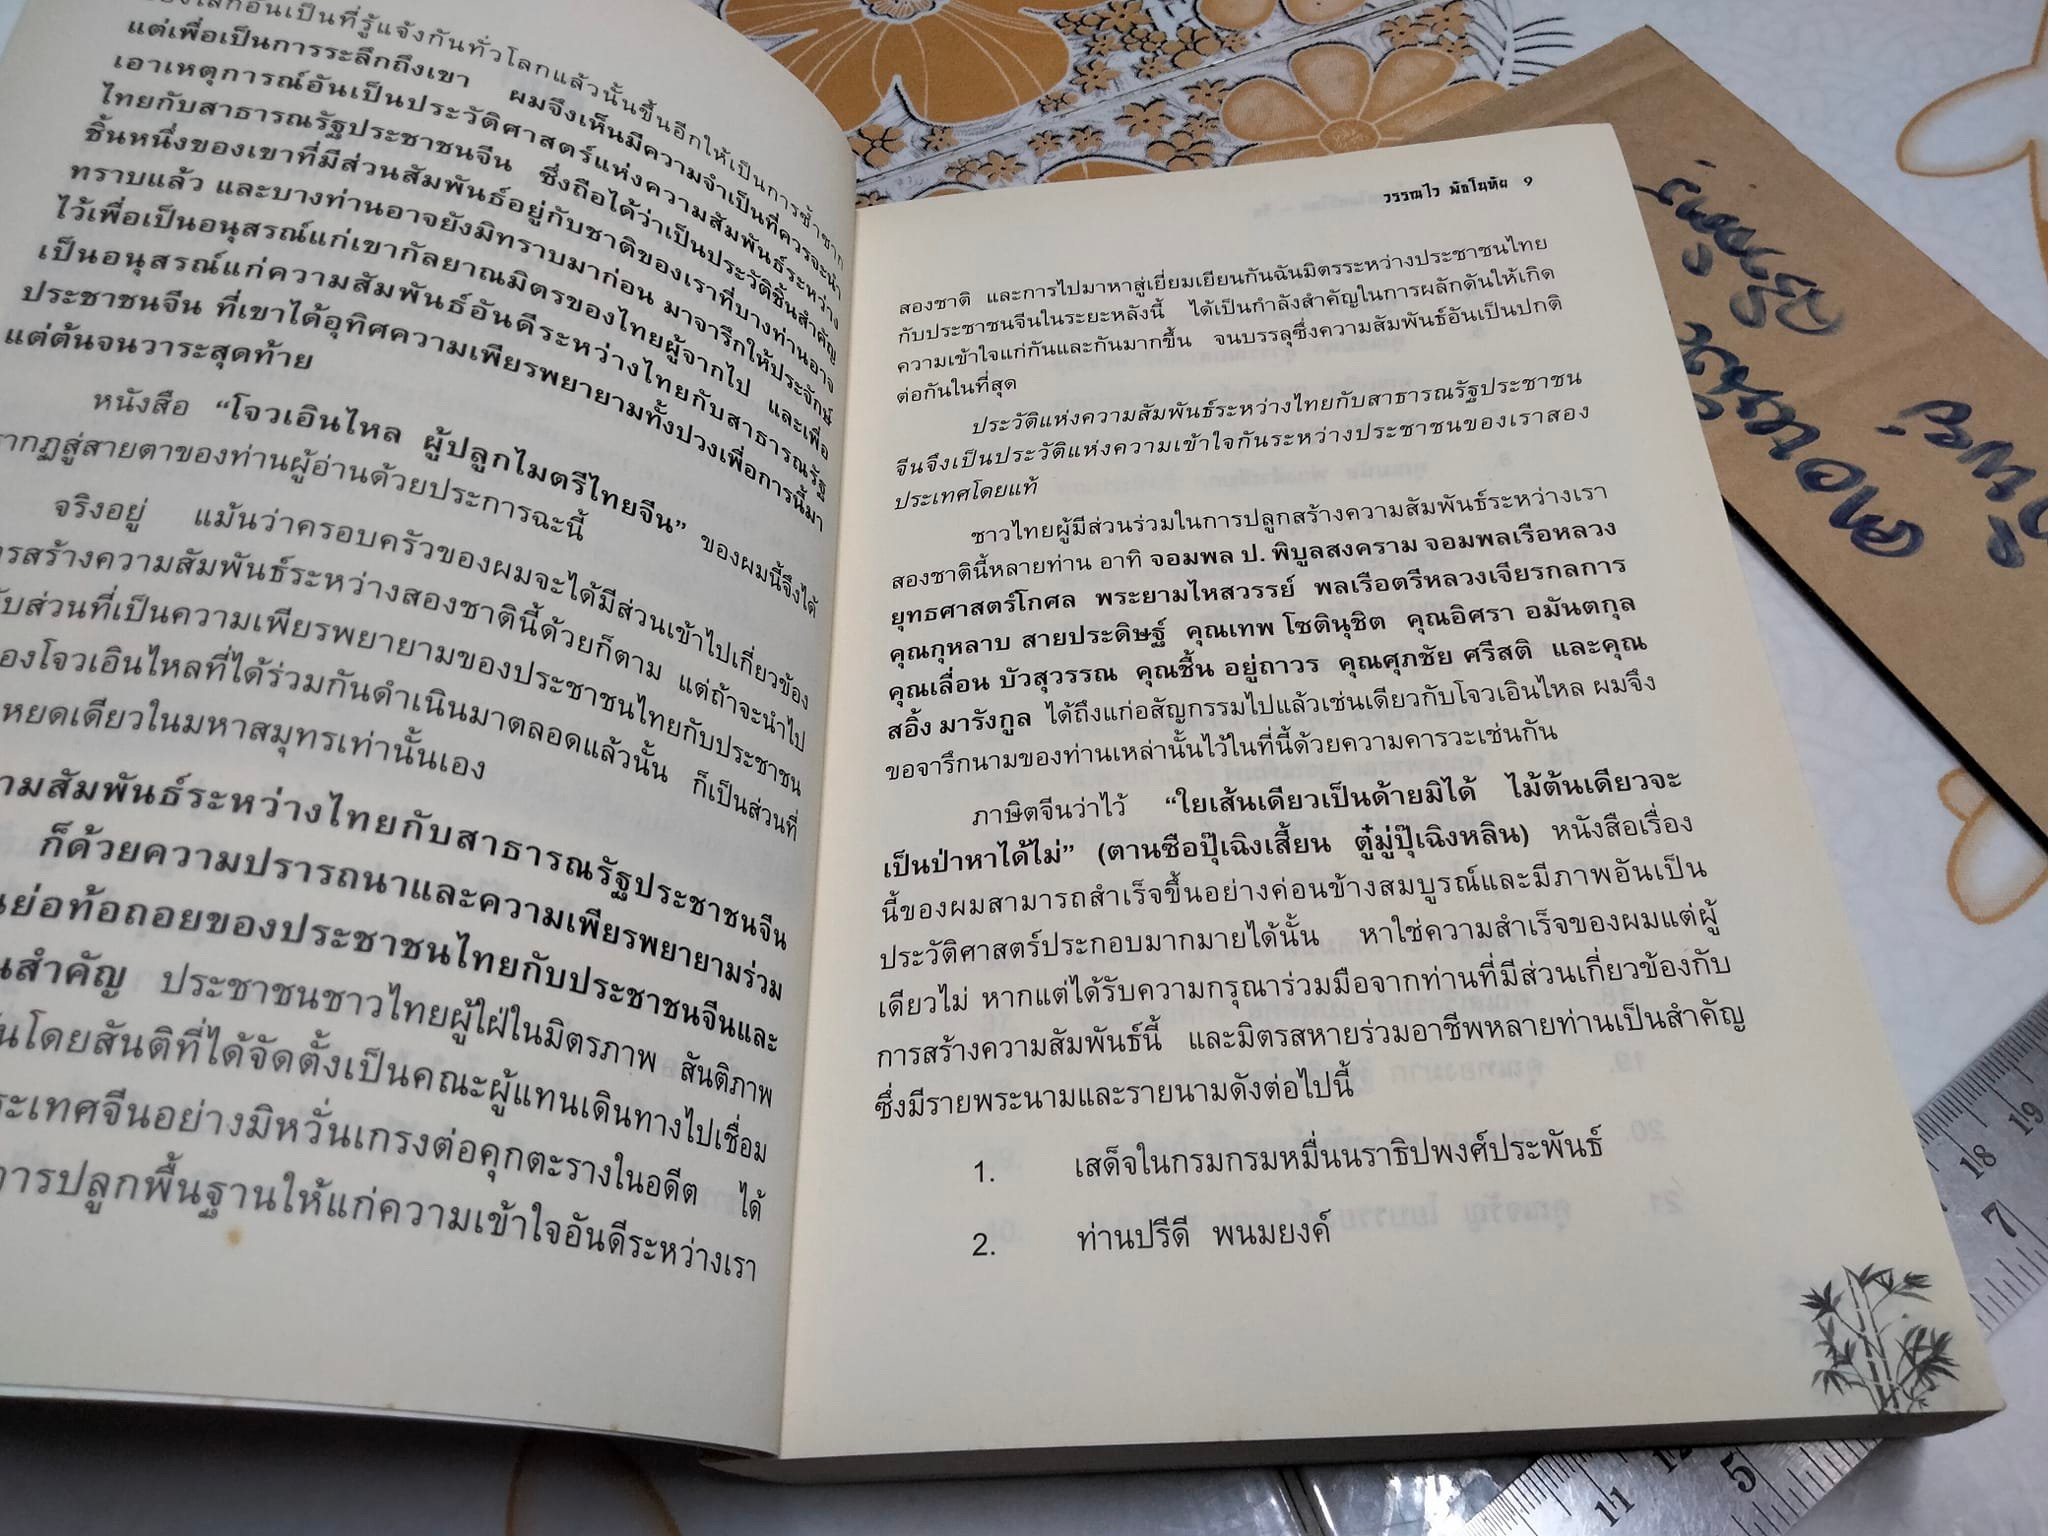 อันเป็นที่รู้แจ้งกันทั่วโลกแล้วนั้นขึ้นอีกให้เป็นการซ้ำซาก
แต่เพื่อเป็นการระลึกถึงเขา ผมจึงเห็นมีความจำเป็นที่ควรจะนำ
เอาเหตุการณ์อันเป็นประวัติศาสตร์แห่งความสัมพันธ์ระหว่าง
ไทยกับสาธารณรัฐประชาชนจีน ซึ่งถือได้ว่าเป็นประวัติชิ้นสำคัญ
ชิ้นหนึ่งของเขาที่มีส่วนสัมพันธ์อยู่กับชาติของเราที่บางท่านอาจ
ทราบแล้ว และบางท่านอาจยังมิทราบมาก่อน มาจารึกให้ประจักษ์
ไว้เพื่อเป็นอนุสรณ์แก่เขากัลยาณมิตรของไทยผู้จากไป และเพื่อ
เป็นอนุสรณ์แก่ความสัมพันธ์อันดีระหว่างไทยกับสาธารณรัฐ
ประชาชนจีน ที่เขาได้อุทิศความเพียรพยายามทั้งปวงเพื่อการนี้มา
แต่ต้นจนวาระสุดท้าย
หนังสือ “โจวเอินไหล ผู้ปลูกไมตรีไทยจีน” ของผมนี้จึงได้
รากฏสู่สายตาของท่านผู้อ่านด้วยประการฉะนี้
จริงอยู่ แม้นว่าครอบครัวของผมจะได้มีส่วนเข้าไปเกี่ยวข้อง
ารสร้างความสัมพันธ์ระหว่างสองชาตินี้ด้วยก็ตาม แต่ถ้าจะนำไป
ับส่วนที่เป็นความเพียรพยายามของประชาชนไทยกับประชาชน
องโจวเอินไหลที่ได้ร่วมกันดำเนินมาตลอดแล้วนั้น ก็เป็นส่วนที่
หยดเดียวในมหาสมุทรเท่านั้นเอง
ามสัมพันธ์ระหว่างไทยกับสาธารณรัฐประชาชนจีน
ก็ด้วยความปรารถนาและความเพียรพยายามร่วม
นย่อท้อถอยของประชาชนไทยกับประชาชนจีนและ
นสำคัญ ประชาชนชาวไทยผู้ใฝ่ในมิตรภาพ สันติภาพ
ันโดยสันติที่ได้จัดตั้งเป็นคณะผู้แทนเดินทางไปเชื่อม
ระเทศจีนอย่างมิหวั่นเกรงต่อคุกตะรางในอดีต ได้
การปลูกพื้นฐานให้แก่ความเข้าใจอันดีระหว่างเรา
วรรณไว พัธโนทัย ๑
สองชาติ และการไปมาหาสู่เยี่ยมเยียนกันฉันมิตรระหว่างประชาชนไทย
กับประชาชนจีนในระยะหลังนี้ ได้เป็นกำลังสำคัญในการผลักดันให้เกิด
ความเข้าใจแก่กันและกันมากขึ้น จนบรรลุซึ่งความสัมพันธ์อันเป็นปกติ
ต่อกันในที่สุด
ประวัติแห่งความสัมพันธ์ระหว่างไทยกับสาธารณรัฐประชาชน
จีนจึงเป็นประวัติแห่งความเข้าใจกันระหว่างประชาชนของเราสอง
ประเทศโดยแท้
ชาวไทยผู้มีส่วนร่วมในการปลูกสร้างความสัมพันธ์ระหว่างเรา
สองชาตินี้หลายท่าน อาทิ จอมพล ป. พิบูลสงคราม จอมพลเรือหลวง
ยุทธศาสตร์โกศล พระยามไหสวรรย์ พลเรือตรีหลวงเจียรกลการ
คุณกุหลาบ สายประดิษฐ์ คุณเทพ โชตินุชิต คุณอิศรา อมันตกุล
คุณเลื่อน บัวสุวรรณ คุณชื้น อยู่ถาวร คุณศุภชัย ศรีสติ และคุณ
สอิ้ง มารังกูล ได้ถึงแก่อสัญกรรมไปแล้วเช่นเดียวกับโจวเอินไหล ผมจึง
ขอจารึกนามของท่านเหล่านั้นไว้ในที่นี้ด้วยความคารวะเช่นกัน
ภาษิตจีนว่าไว้ “ใยเส้นเดียวเป็นด้ายมิได้ ไม้ต้นเดียวจะ
เป็นป่าหาได้ไม่” (ตานซือปุ๊เฉิงเสี้ยน ตู๋มู่ปุ๊เฉิงหลิน) หนังสือเรื่อง
นี้ของผมสามารถสำเร็จขึ้นอย่างค่อนข้างสมบูรณ์และมีภาพอันเป็น
ประวัติศาสตร์ประกอบมากมายได้นั้น หาใช่ความสำเร็จของผมแต่ผู้
เดียวไม่ หากแต่ได้รับความกรุณาร่วมมือจากท่านที่มีส่วนเกี่ยวข้องกับ
การสร้างความสัมพันธ์นี้ และมิตรสหายร่วมอาชีพหลายท่านเป็นสำคัญ
ซึ่งมีรายพระนามและรายนามดังต่อไปนี้
1. เสด็จในกรมกรมหมื่นนราธิปพงศ์ประพันธ์
2. ท่านปรีดี พนมยงค์
19
18
7
5
11